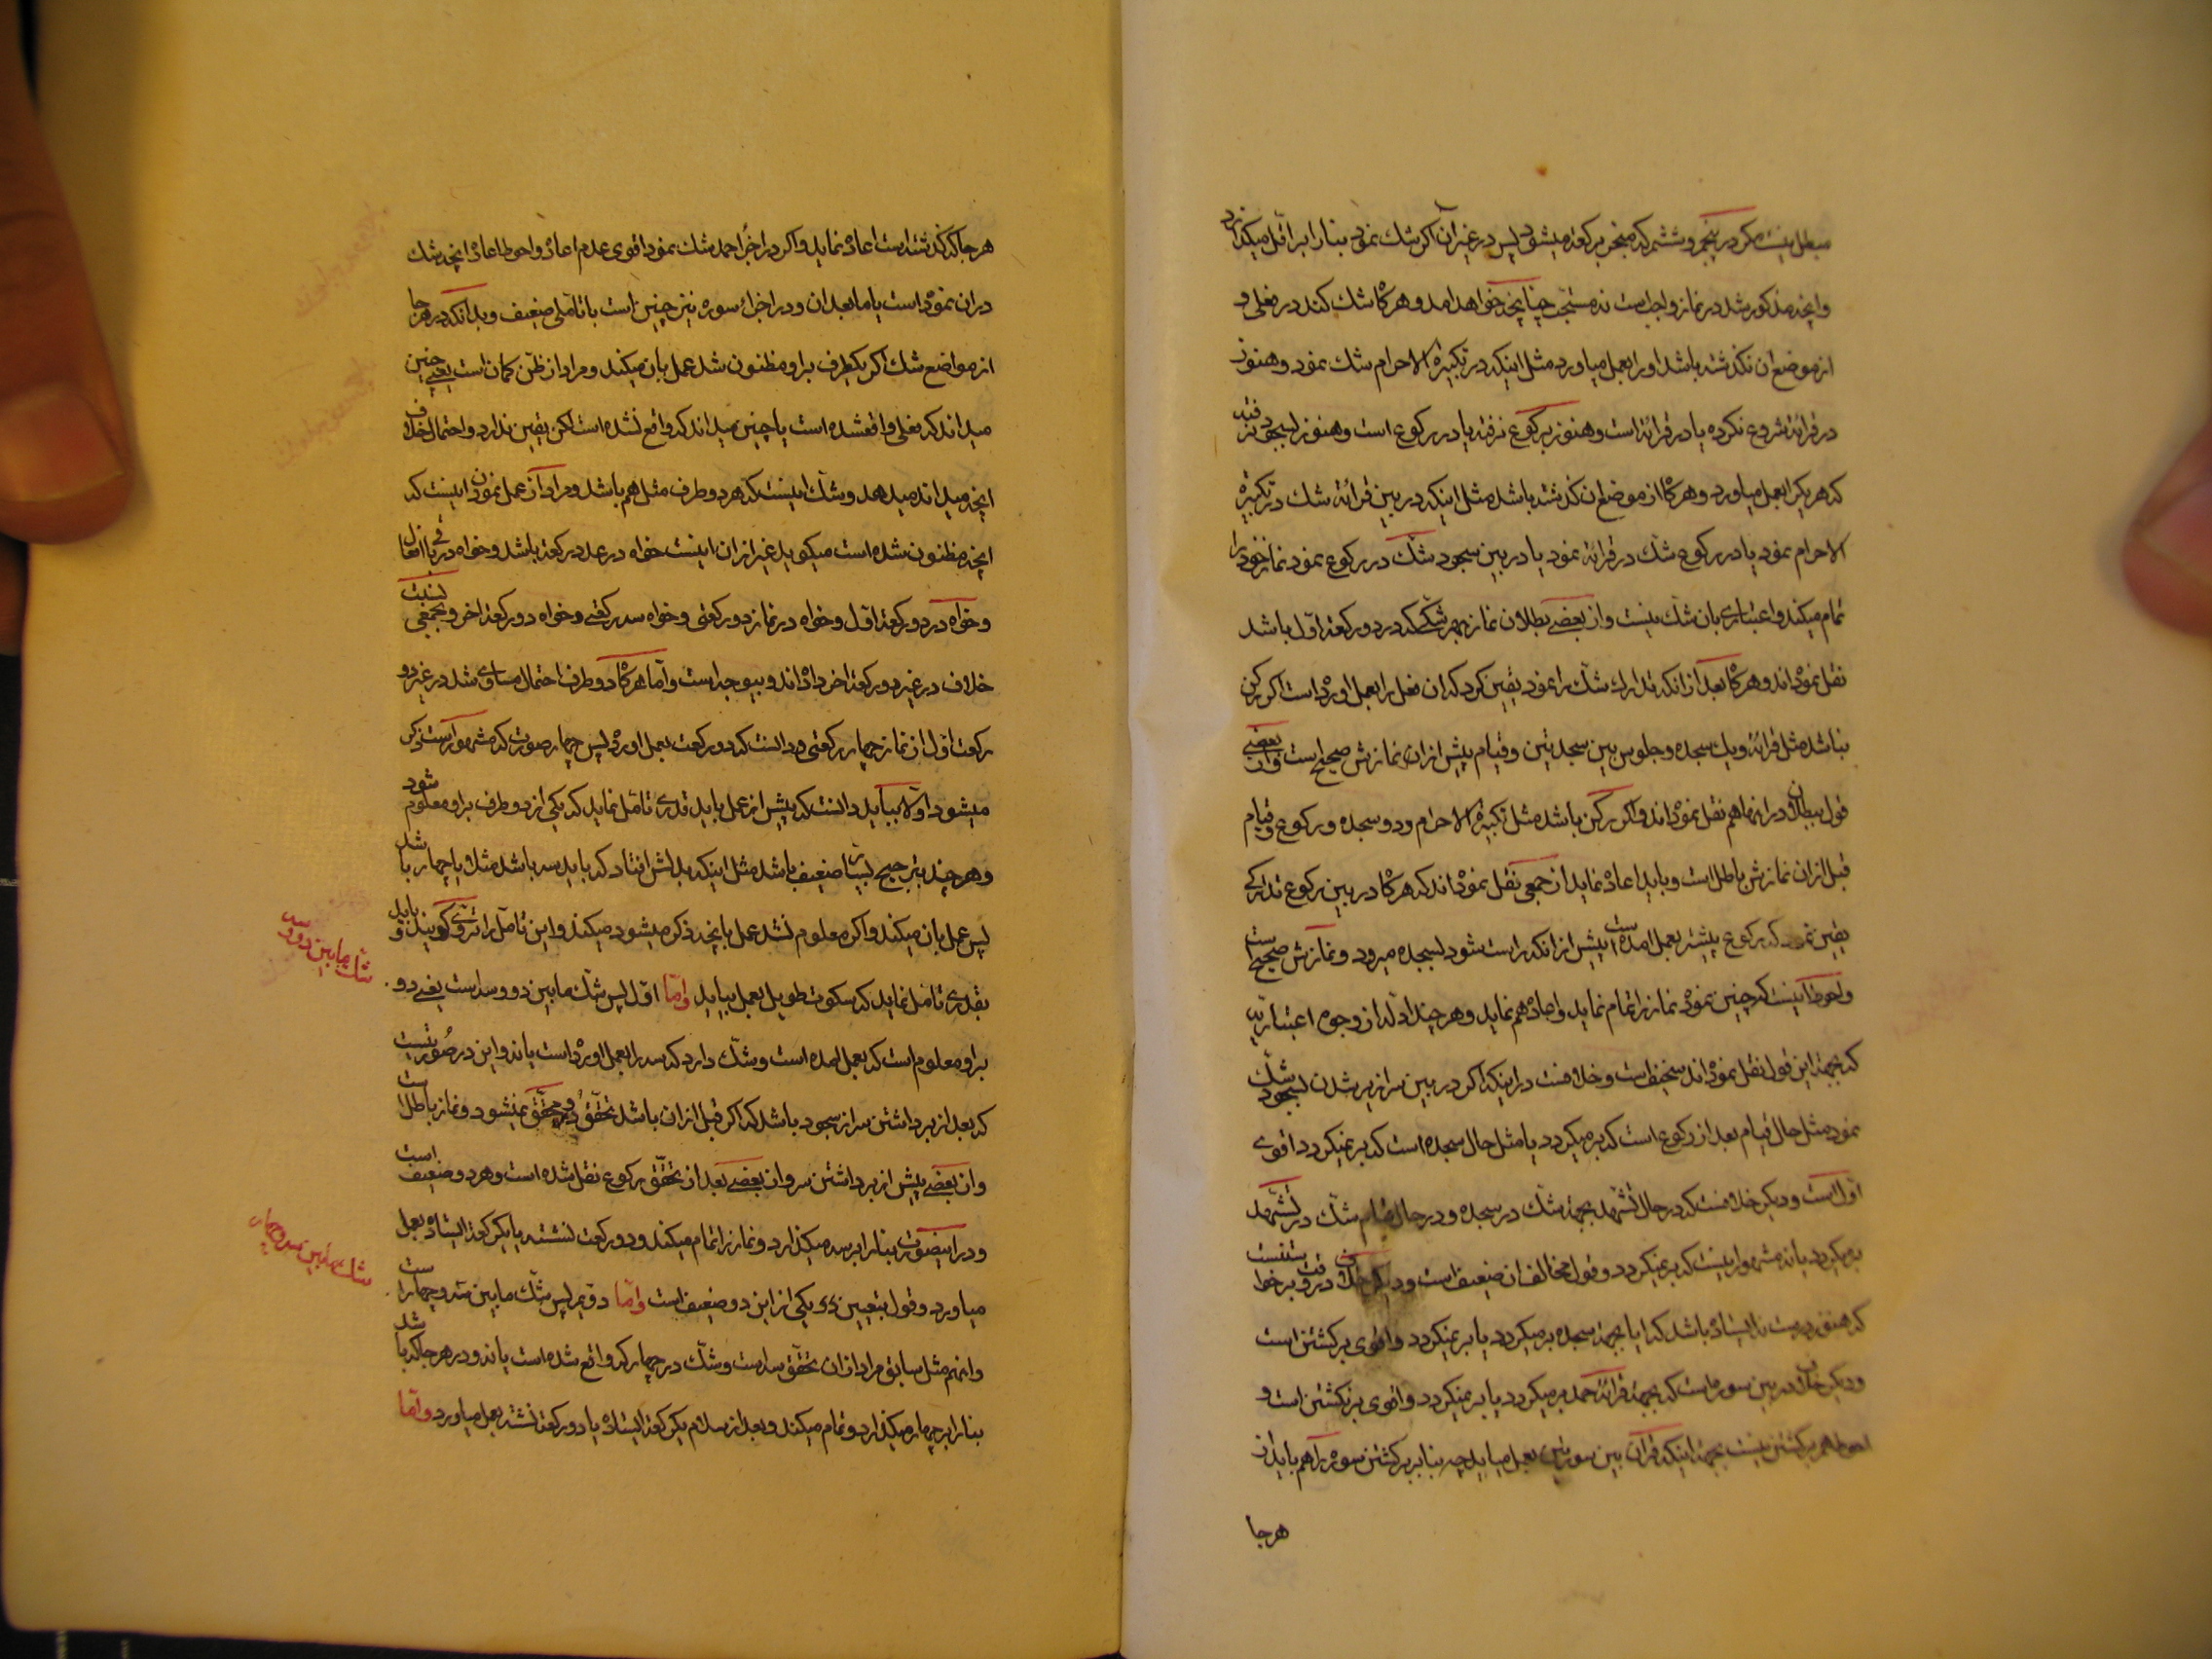 مبطل نیست مکر در پنجم و ششم که منجر برکعة میشود پس در غیر آن اکر شك نمود بنا را بر اقل میکذارد
و انچه مذکور شد در نماز واجب است نه مستحب چنانچه خواهد امد و هرکاه شك کند در فعلی و
از موضع ان نکذشته باشد او را بعمل میاورد مثل اینکه در تکبیرة الاحرام شك نمود و هنوز
در قرائة شروع نکرده یا در قرائة است و هنوز برکوع نرفته یا در رکوع است و هنوز بسجود نرفته
که هر یکرا بعمل میاورد و هرکاه از موضع ان کذشته باشد مثل اینکه در بین قرائة شك در تکبیرة
الاحرام نمود یا در رکوع شك در قرائة نمود یا در بین سجود شك در رکوع نمود نماز خود را
تمام میکند و اعتباری بان شك نیست و از بعضے بطلان نماز بهر شکے که در دو رکعة اول باشد
نقل نموده اند و هرکاه بعد از انکه تدارك شك را نمود یقین کرد که ان فعل را بعمل اورده است اکر رکن
نباشد مثل قرائة و یك سجده و جلوس بین سجدتین و قیام پیش از ان نمازش صحیح است و از بعضے
قول ببطلان در اینها هم نقل نموده اند و اکر رکن باشد مثل تکبیرة الاحرام و دو سجده و رکوع و قیام
قبل از ان نمازش باطل است و باید اعاده نماید از جمعی نقل نموده اند که هرکاه در بین رکوع تدارکے
یقین نمود که رکوع پیشتر بعمل امده است پیش از انکه راست شود بسجده میرود و نمازش صحیح است
و احوط اینست که چنین نموده نماز را تمام نماید و اعاده هم نماید و هر چند ادله از وجوه اعتباریه
که بجهة این قول نقل نموده اند سخیف است و خلافست در اینکه اکر در بین سرازیر شدن بسجود شك
نمود مثل حال قیام بعد از رکوع است که بر میکردد یا مثل حال سجده است که بر نمیکردد اقوی
اول است و دیکر خلافست که در حال تشهد بجهة شك در سجده و در حال قیام شك در تشهد
بر میکردد یا نه مشهور اینست که بر نمیکردد و قول مخالف ان ضعیف است و دیکر خلاف در وقت برخواستنست
که هنوز درست نایستاده باشد که ایا بجهة سجده بر میکردد یا بر نمیکردد و اقوی برکشتن است
و دیکر خلاف در بین سوره است که بجهة قرائة حمد بر میکردد یا بر نمیکردد و اقوی برنکشتن است و
احوط هم برکشتن نیست بجهة اینکه قران بین سورتین بعمل میاید چه بنا بر برکشتن سوره را هم باید از
هرجا
هرجا که کذشته است اعاده نماید و اکر در اجزاء حمد شك نمود اقوی عدم اعاده و احوط اعاده انچه شك
دران نموده است یا ما بعد ان و در اجزاء سوره نیز چنین است با تاملی ضعیف و بدانکه در هرجا
از مواضع شك اکر یکطرف براو مظنون شد عمل بان میکند و مراد از ظن کمان است یعنے چنین
میداند که فعلی واقعشده است یا چنین میداند که واقع نشده است لکن یقین ندارد و احتمال خلاف
انچه میداند میدهد و شك اینست که هر دو طرف مثل هم باشد و مراد از عمل نمودن اینست که
انچه مظنون شده است میکوید غیر از ان اینست خواه در عدد رکعة باشد و خواه در باقی افعال
و خواه در دو رکعة اول و خواه در نماز دو رکعتی و خواه سه رکعتے و خواه دو رکعة اخر و بجمعی نسبت
خلاف در غیر دو رکعة اخر داده اند و بیوجه است و اما هرکاه دو طرف احتمال مساوی شد در غیر دو
رکعت اول از نماز چهار رکعتی و دانست که دو رکعت بعمل اورده پس چهار صورت که مشهور است ذکر
میشود اولا ببایید دانست که پیش از عمل باید قدری تامل نماید که یکی از دو طرف براو معلوم شود
و هر چند بترجیح بسیار ضعیف باشد مثل اینکه بدلش افتاد که باید سه باشد مثلا یا چهار باشد
پس عمل بان میکند و اکر معلوم نشد عمل بانچه ذکر میشود میکند و این تامل را تروی کویند و باید
بقدری تامل نماید که سکوت طویل بعمل نیاید و اما اول پس شك مابین دو و سه است یعنے دو
براو معلوم است که بعمل امده است و شك دارد که سه را بعمل اورده است یا نه و این در صورتیست
که بعد از برداشتن سر از سجود باشد که اکر قبل از ان باشد تحقق دو محقق نمیشود و نماز باطل است
و از بعضے پیش از برداشتن سر و از بعضے بعد از تحقق رکوع نقل شده است و هر دو ضعیف است
و در اینصورت بنا را بر سه میکذارد و نماز را تمام میکند و دو رکعت نشسته یا یکرکعة ایستاده بعمل
میاورد و قول بتعیین یکی از این دو ضعیف است و اما دویم پس شك مابین سه و چهار است
و اینهم مثل سابق مراد از ان تحقق سه است و شك در چهار که واقع شده است یا نه و در هرجا که باشد
بنا را بر چهار میکذارد و تمام میکند و بعد از سلام یکرکعة ایستاده یا دو رکعة نشسته بعمل میاورد و اما
شك مابین دو و سه
شك مابین سه و چهار